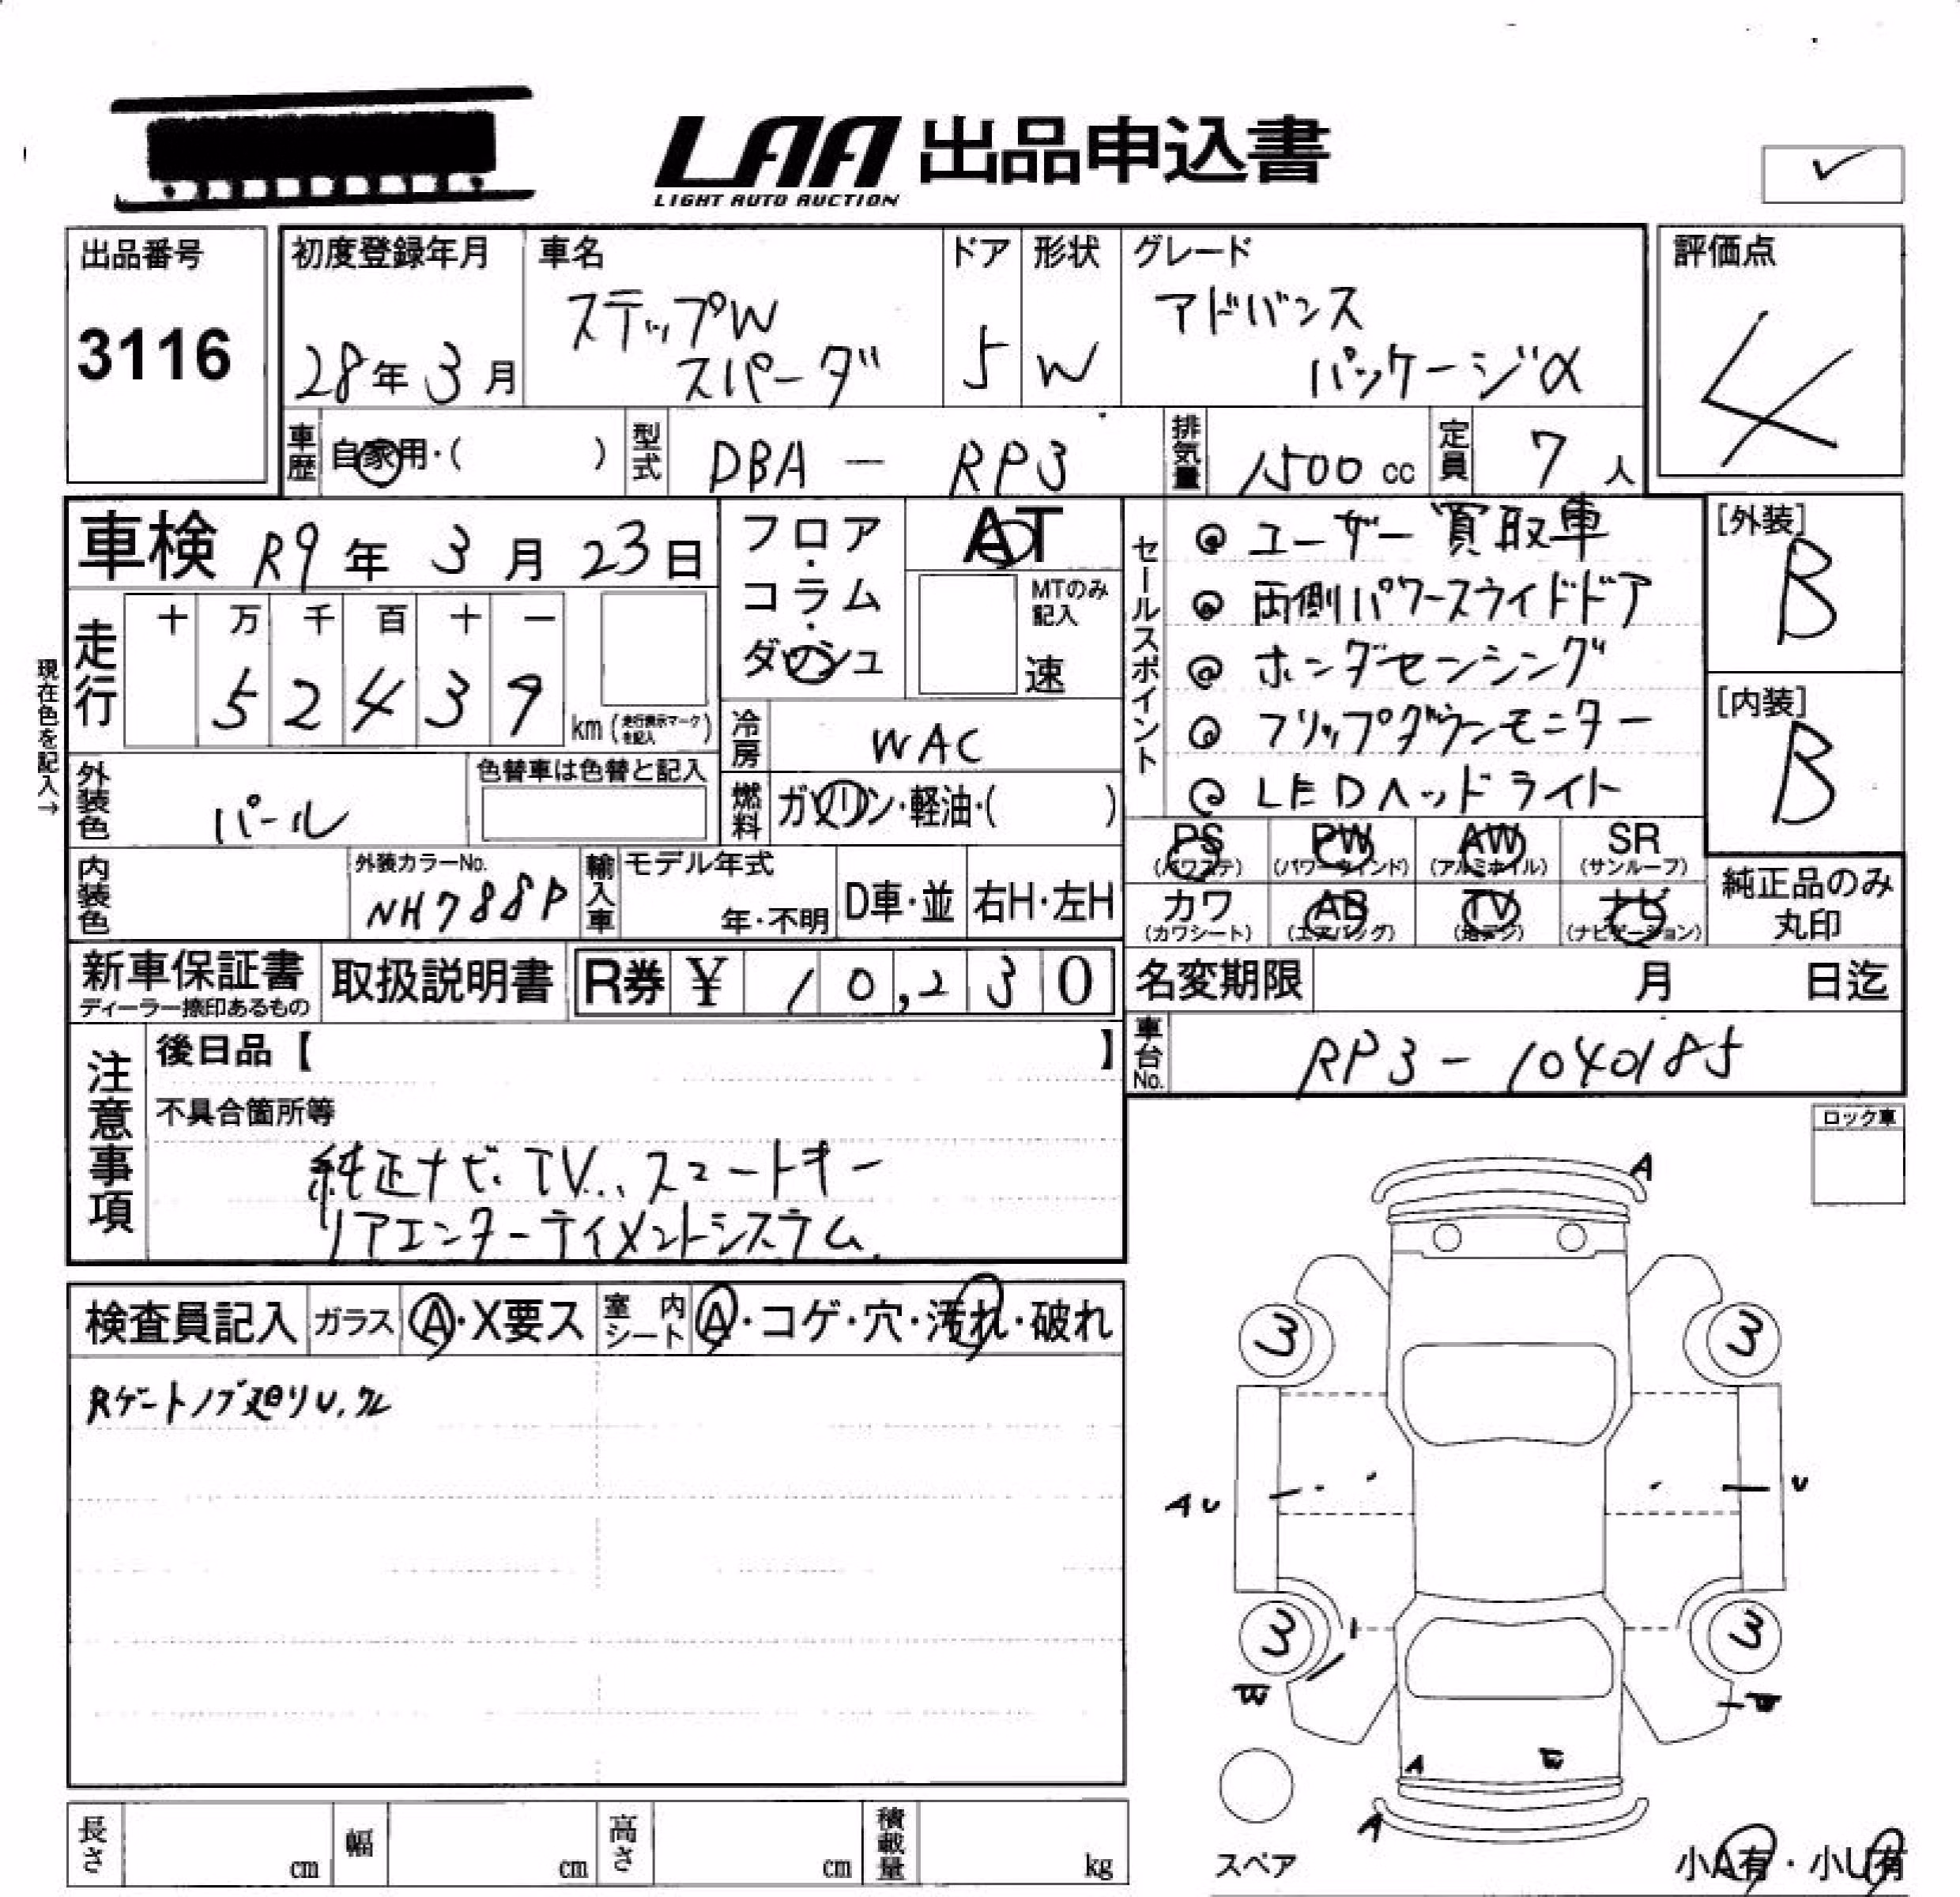 LAA 出品申込書
LIGHT AUTO AUCTION
出品番号
3116
初度登録年月
28年3月
車名
ステップW
スパーダ
ドア
5
形状
W
グレード
アドバンス
パッケージα
評価点
4
車歴 自家用・( )
型式 DBA - RP3
排気量 1500 cc
定員 7 人
車検 R9年 3月 23日
フロア・コラム・ダッシュ
AT
MTのみ記入
速
走行
十 万 千 百 十 一
5 2 4 3 9
km (走行表示マークを記入)
現在色を記入→
外装色 パール
色替車は色替と記入
冷房 WAC
燃料 ガソリン・軽油・( )
内装色
外装カラーNo.
NH788P
輸入車
モデル年式
年・不明
D車・並
右H・左H
新車保証書
ディーラー捺印あるもの
取扱説明書
R券 ¥ 10,230
セールスポイント
◎ ユーザー買取車
◎ 両側パワースライドドア
◎ ホンダセンシング
◎ フリップダウンモニター
◎ LEDヘッドライト
[外装]
B
[内装]
B
PS (パワステ)
PW (パワーウィンド)
AW (アルミホイル)
SR (サンルーフ)
カワ (カワシート)
AB (エアバッグ)
TV (地デジ)
ナビ (ナビゲーション)
純正品のみ
丸印
名変期限 月 日迄
車台No. RP3-1040185
注意事項
後日品【 】
不具合箇所等
純正ナビ、TV、スマートキー
リアエンターティメントシステム
ロック車
検査員記入
ガラス A・X要ス
室内シート A・コゲ・穴・汚れ・破れ
Rゲートノブ廻りU.
A
3 3
AU U
3 3
W W
A
A
スペア
小A有・小U有
長さ cm
幅 cm
高さ cm
積載量 kg